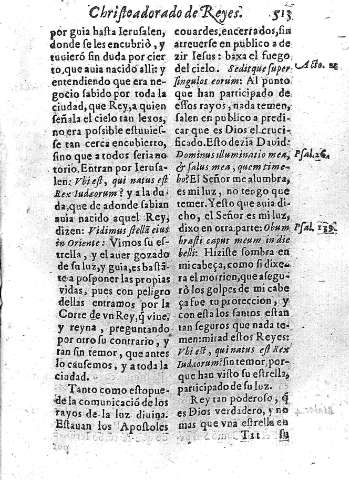 Christo adorado de Reyes. 513
por guia hasta Ierusalen,
donde se les encubriò, y
tuvierõ sin duda por cier
to, que auia nacido alli: y
entendiendo que era ne-
gocio sabido por toda la
ciudad, que Rey, a quien
señala el cielo tan lexos,
no era possible estuuies-
se tan cerca encubierto,
sino que a todos seria no-
torio. Entran por Ierusa-
len: Vbi est, qui natus est
Rex Iudæorum? y a la du-
da, que de adonde sabian
auia nacido aquel Rey,
dizen: Vidimus stellã eius
in Oriente: Vimos su es-
trella, y el auer gozado
de su luz, y guia, es bastã-
te a posponer las propias
vidas, pues con peligro
dellas entramos por la
Corte de vn Rey, q̃ viue,
y reyna, preguntando
por otro su contrario, y
tan sin temor, que antes
lo causemos, y a toda la
ciudad.
Tanto como esto pue-
de la comunicació de los
rayos de la luz diuina.
Estauan los Apostoles
couardes, encerrados, sin
atreuerse en publico a de
zir Iesus: baxa el fuego
del cielo. Sedit que super
singulos eorum: Al punto
que han participado de
essos rayos, nada temen,
salen en publico a predi-
car que es Dios el cruci-
ficado. Esto dezia Dauid:
Dominus illuminatio mea,
& salus mea, quem time-
bo? El Señor me alumbra,
es mi luz, no tengo que
temer. Y esto que auia di-
cho, el Señor es mi luz,
dixo en otra parte: Obum
brasti caput meum in die
belli: Hiziste sombra en
mi cabeça, como si dixe-
ra el morrion, que asegu-
rò los golpes de mi cabe
ça fue tu proteccion, y
con esta los santos estan
tan seguros que nada te-
men: mirad estos Reyes:
Vbi est, qui natus est Rex
Iudæorum? sin temor, por-
que han visto su estrella,
participado de su luz.
Rey tan poderoso, q̃
es Dios verdadero, y no
mas que vna estrella en
Ttt su
Acto. 2.
Psal. 26.
Psal. 139.